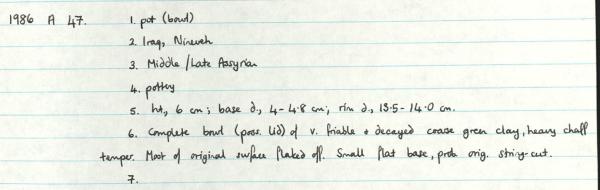 1986 A 47. 1. pot (bowl)
2. Iraq, Nineveh
3. Middle / Late Assyrian
4. pottery
5. ht., 6 cm; base d., 4-4·8 cm; rim d., 13·5-14·0 cm.
6. Complete bowl (poss. lid) of v. friable + decayed coarse green clay, heavy chaff
temper. Most of original surface flaked off. Small flat base, prob. orig. string-cut.
7.